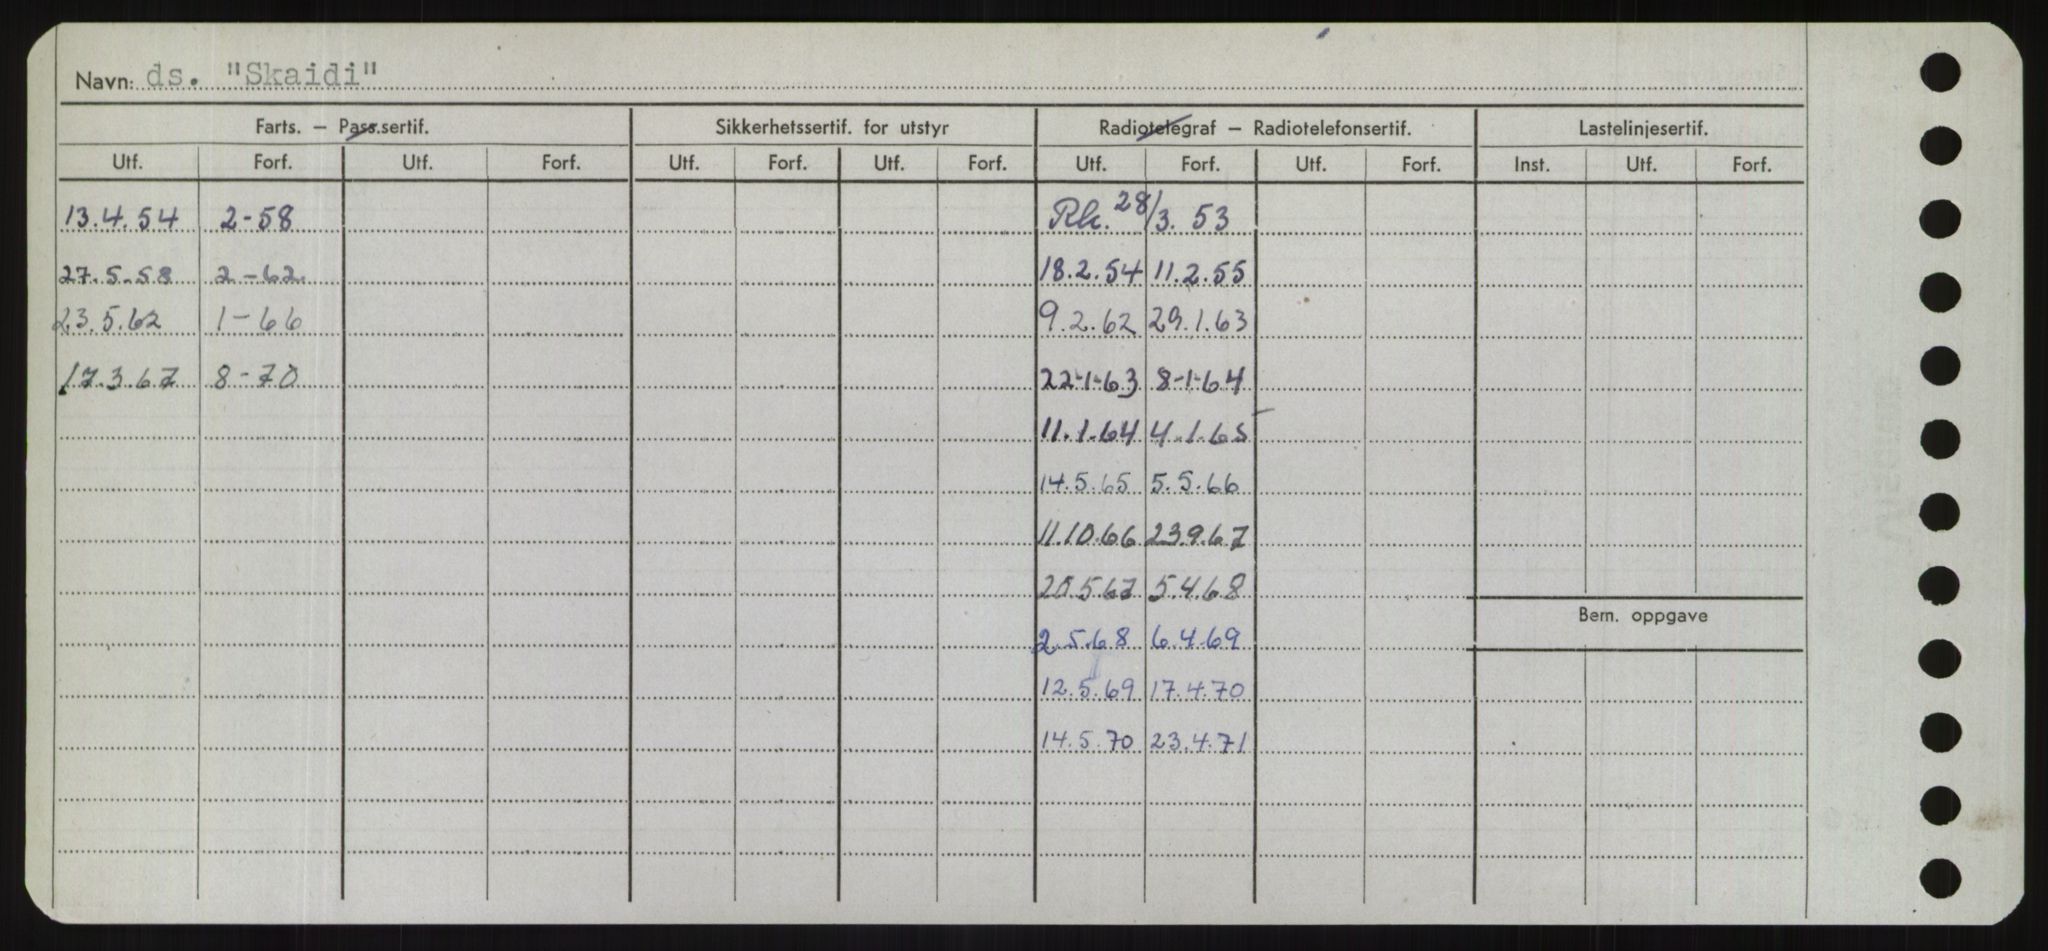 Navn: ds. "Skaidi"
Farts. – Pass.sertif. Sikkerhetssertif. for utstyr Radiotelegraf – Radiotelefonsertif. Lastelinjesertif.
Utf. Forf. Utf. Forf. Utf. Forf. Utf. Forf. Utf. Forf. Utf. Forf. Inst. Utf. Forf.
13.4.54 2-58 Rk. 28/3. 53
27.5-58 2-62 18.2.54 11.2.55
23.5.62 1-66 9.2.62 29.1.63
17.3.67 8-70 22-1-63 8-1-64
11.1.64 4.1.65
14.5.65 5.5.66
11.10.66 23.9.67
20.5.67 5.4.68
Bem. oppgave
2.5.68 6.4.69
12.5.69 17.4.70
14.5.70 23.4.71